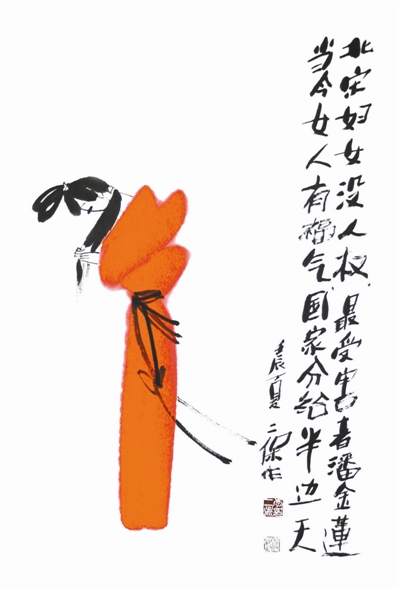 北宋妇女没人权最受害者潘金莲
当今女人有福气国家分给半边天
壬辰夏
二保作